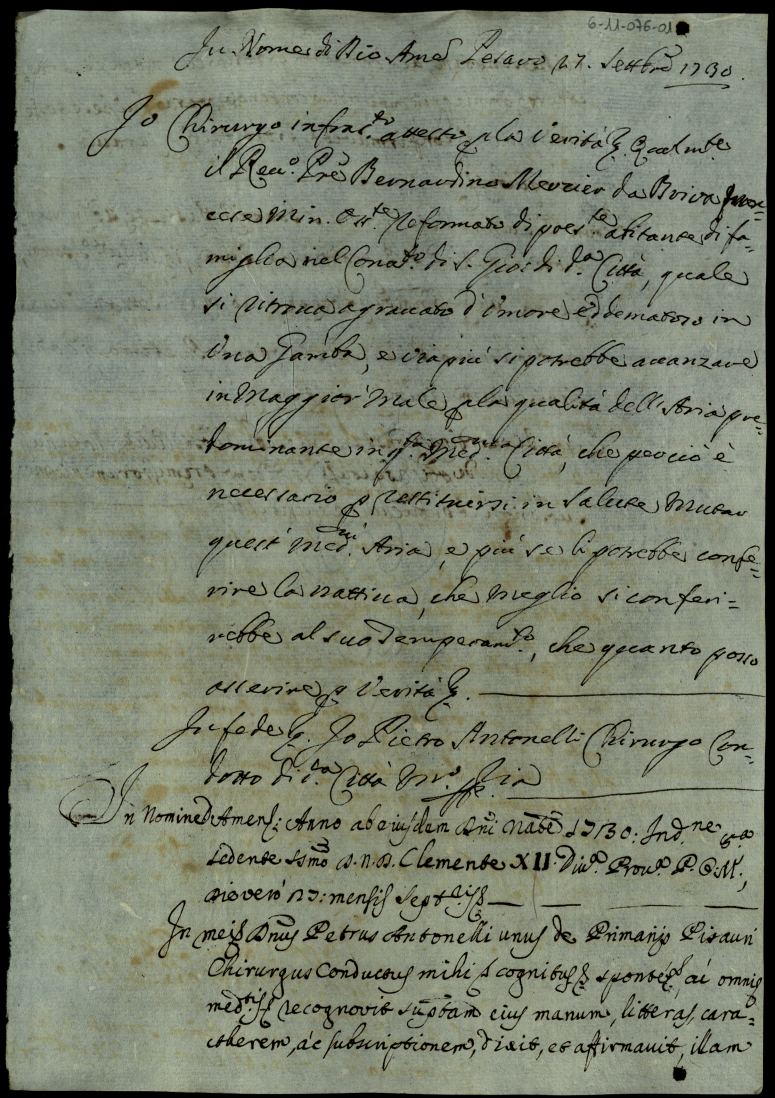 6-11-076-01
In Nome di Dio Amen Pesaro 27. Settbre 1730.
Io Chirurgo infrastto attesto p la Verità &. Qualmte
il Revo. Pre Bernardino Mercier da Briva
Min. Osste Reformato di pnte abitante di fa=
miglia nel Convto. di S. Gio: di da. Città, quale
si ritrova agravato d'Umore eddematoso in
Una Gamba, e via più si potrebbe avanzare
in Maggior Male p la qualità dell'Aria pre=
dominante in qta Meda Città, che perciò è
necessario p restituirsi in Salute Mutar
quest' Meda. Aria, e più se li potrebbe confe=
rire la nattiva, che Meglio si conferi=
rebbe al suo Temperamto, che quanto posso
asserire p Verità &.
In fede &. Io Pietro Antonelli Chirurgo Con=
dotto di da Città Mo. ppia
In Nomine D. Amen: Anno ab eiusdem Dni Natte 1730. Indne 8a
sedente SSmo D. N. D. Clemente XII. Diva Prova P. O. M,
die vero 27: mensis Septris
In meis Dnus Petrus Antonelli unus de Primarijs Pisauri
Chirurgus Conductus mihi cognitus & sponte &, ac omni
recognovit suptam eius manum, litteras, cara=
cterem, ac subscriptionem, dixit, et affirmavit, illam